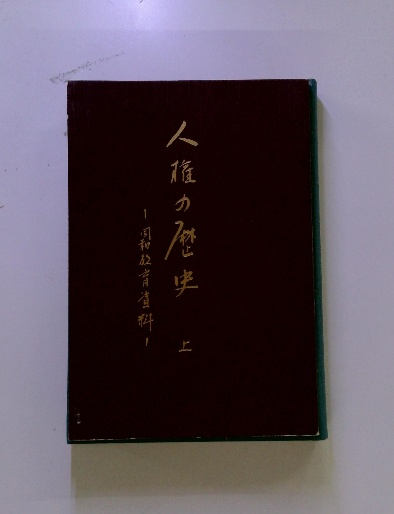 人権の歴史
上
ー同和教育資料ー